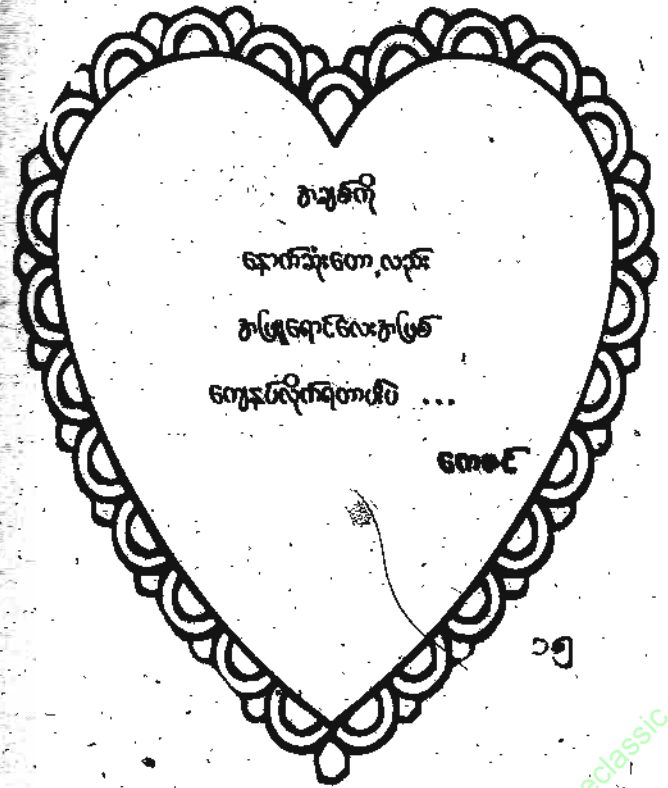 အချစ်ကို
နောက်ဆုံးတော့လည်း
အဖြူရောင်လေးအဖြစ်
ကျေနပ်လိုက်ရတာပါပဲ ...
ကေခင်
၁၅
eclassic